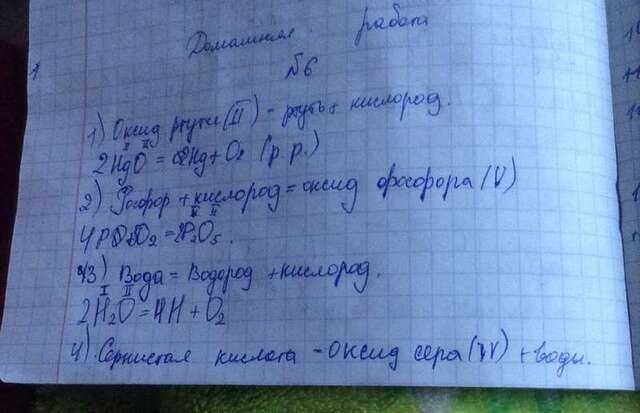 Домашняя работа
№6
1) Оксид ртути (II) - ртуть + кислород.
II II
2HgO = 2Hg + O₂ (р.р.)
2) Фосфор + кислород = оксид фосфора (V)
V II
4P + 5O₂ = 2P₂O₅.
3) Вода = Водород + кислород.
I II
2H₂O = 4H + O₂
4) Сернистая кислота - Оксид сера (IV) + воды.